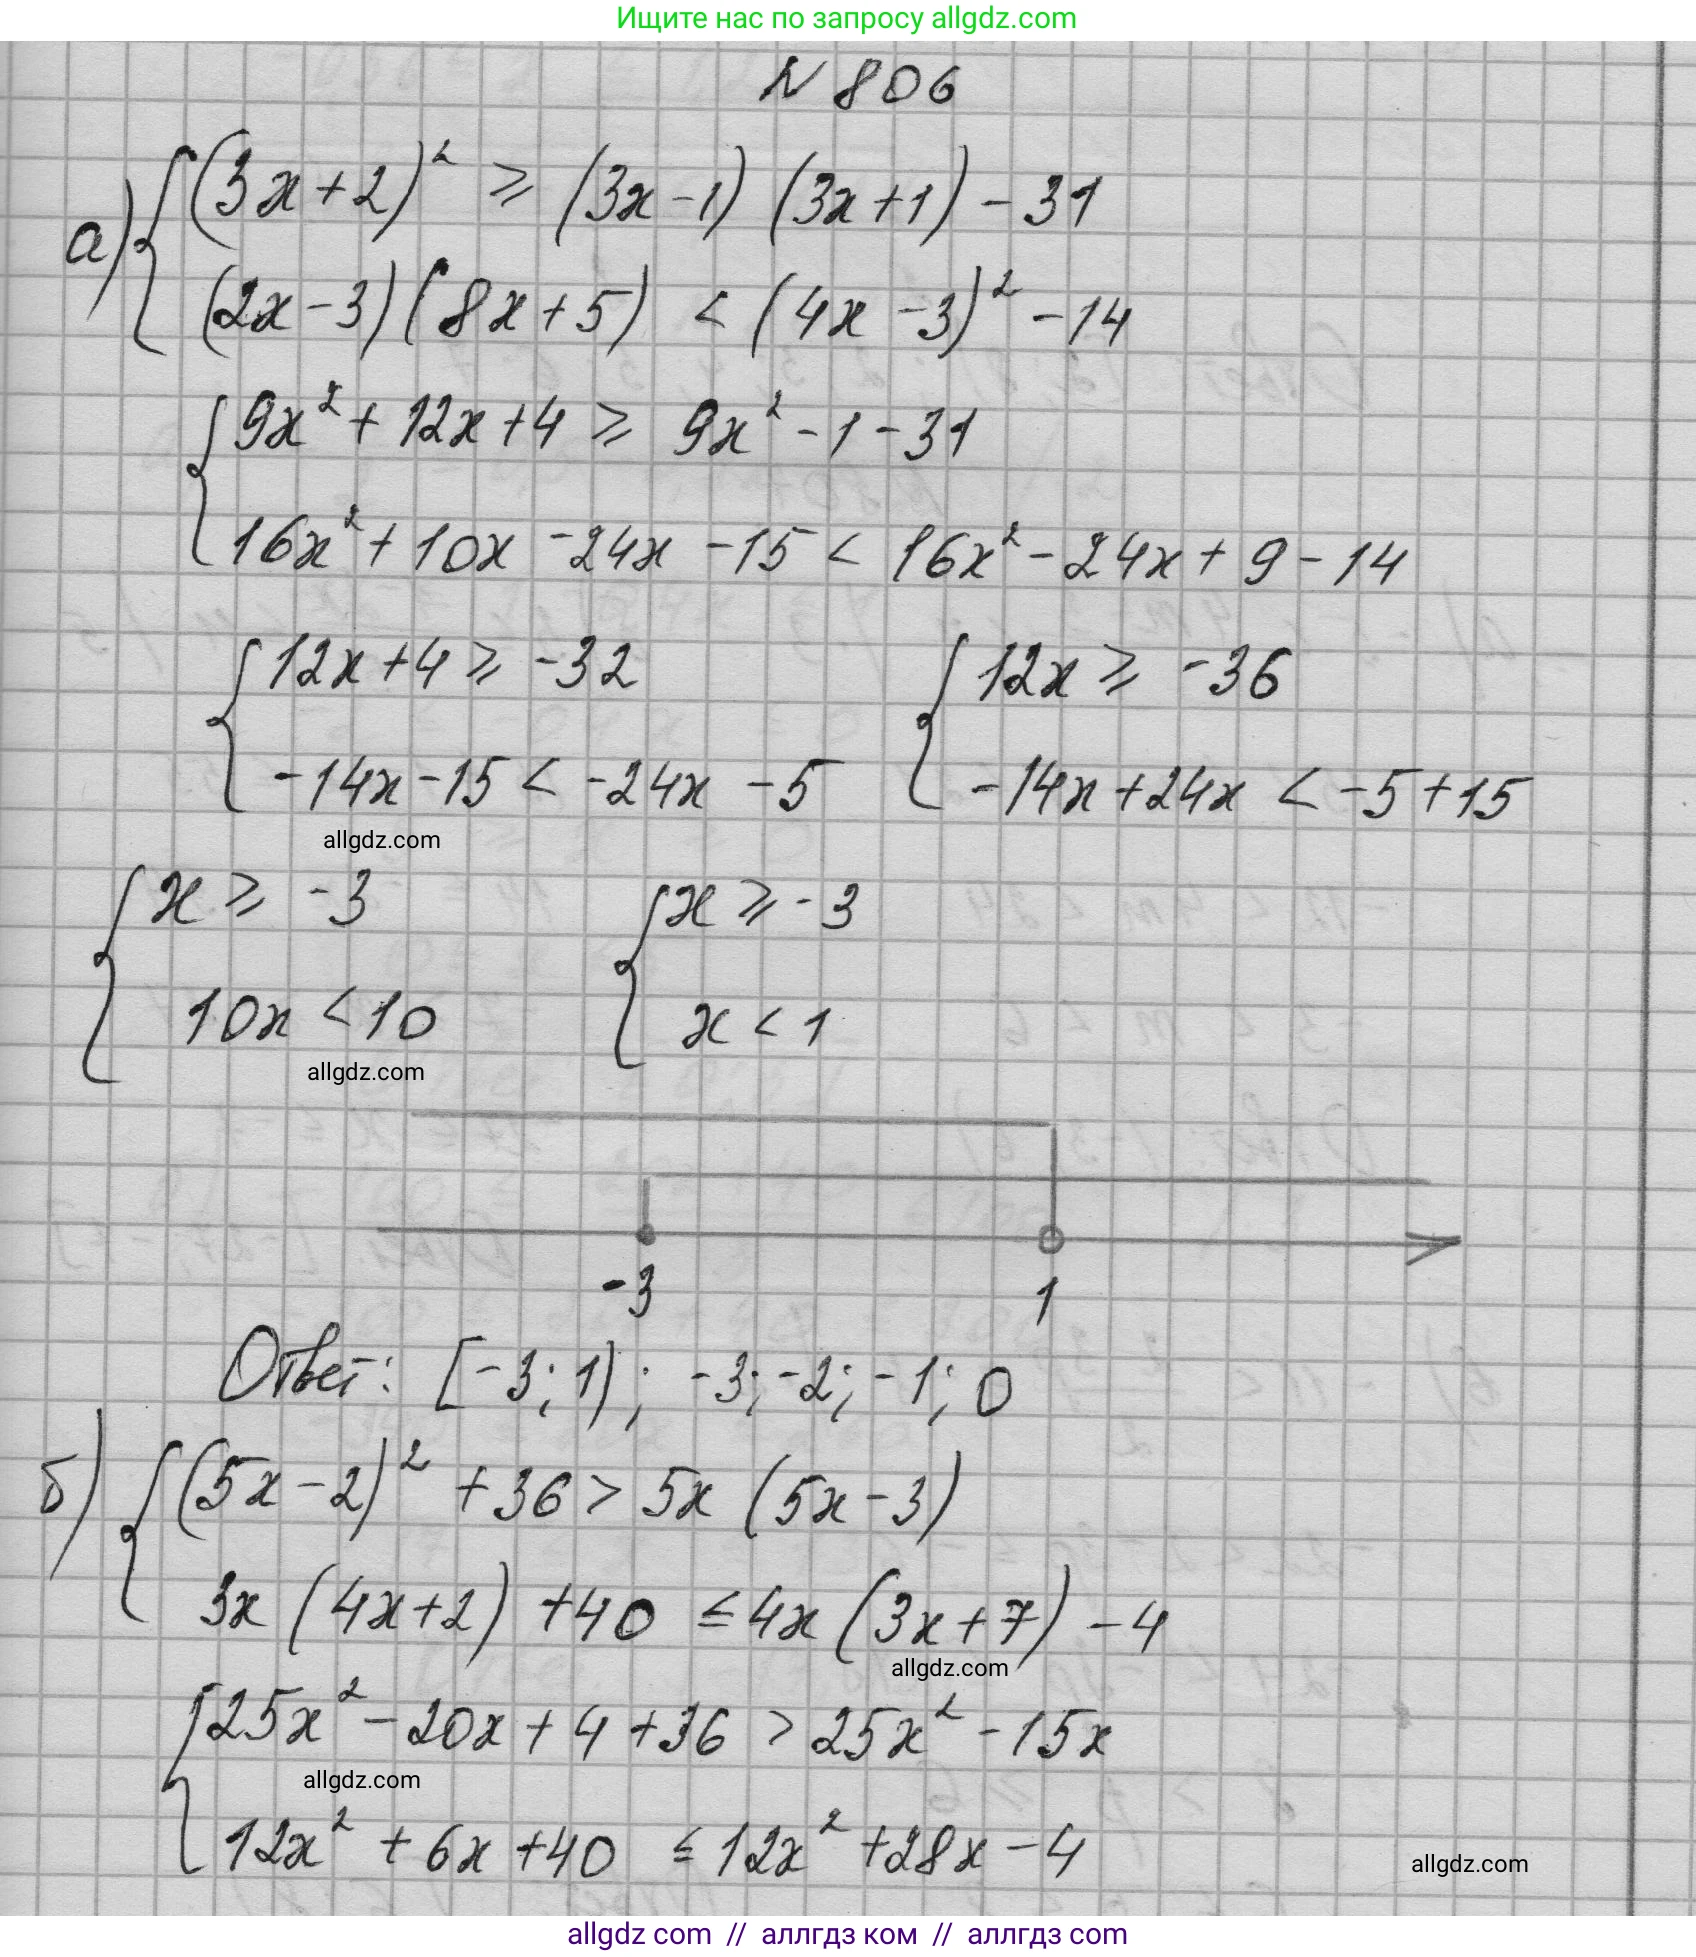 Ищите нас по запросу allgdz.com
N 806
а) { (3x+2)² ⩾ (3x-1) (3x+1) - 31
(2x-3) (8x+5) < (4x-3)² - 14
{ 9x² + 12x + 4 ⩾ 9x² - 1 - 31
16x² + 10x - 24x - 15 < 16x² - 24x + 9 - 14
{ 12x + 4 ⩾ -32 { 12x ⩾ -36
-14x - 15 < -24x - 5 -14x + 24x < -5 + 15
allgdz.com
{ x ⩾ -3 { x ⩾ -3
10x < 10 x < 1
allgdz.com
-3 1
Ответ: [-3; 1); -3; -2; -1; 0
б) { (5x-2)² + 36 > 5x (5x-3)
3x (4x+2) + 40 ≤ 4x (3x+7) - 4
allgdz.com
{ 25x² - 20x + 4 + 36 > 25x² - 15x
allgdz.com
12x² + 6x + 40 ≤ 12x² + 28x - 4
allgdz.com
allgdz com // аллгдз ком // allgdz.com